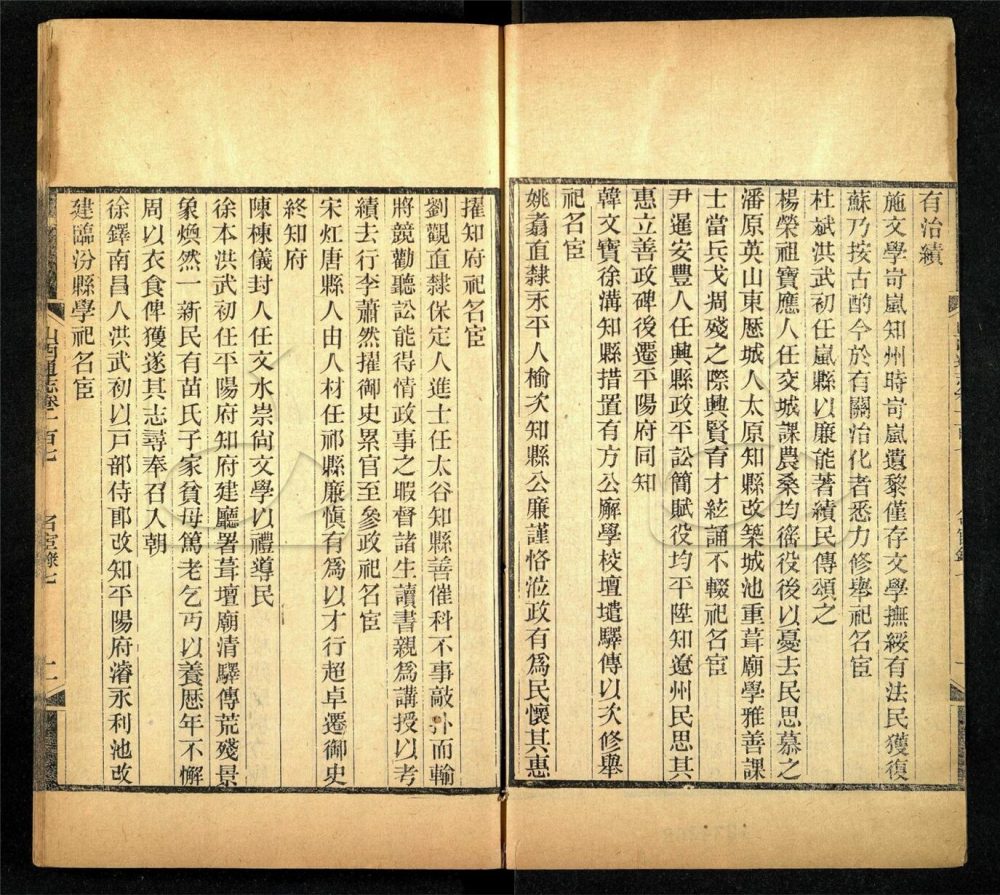 有治績
施文學岢嵐知州時岢嵐遺黎僅存文學撫綏有法民獲復
蘇乃按古酌今於有關治化者悉力修舉祀名宦
杜斌洪武初任嵐縣以廉能著績民傳頌之
楊榮祖寶應人任交城課農桑均徭役後以憂去民思慕之
潘原英山東歷城人太原知縣改築城池重葺廟學雅善課
士當兵戈凋殘之際興賢育才絃誦不輟祀名宦
尹暹安豐人任興縣政平訟簡賦役均平陞知遼州民思其
惠立善政碑後遷平陽府同知
韓文寶徐溝知縣措置有方公廨學校壇壝驛傳以次修舉
祀名宦
姚翥直隸永平人榆次知縣公廉謹恪涖政有爲民懷其惠
擢知府祀名宦
劉觀直隸保定人進士任太谷知縣善催科不事敲扑而輸
將競勸聽訟能得情政事之暇督諸生讀書親爲講授以考
績去行李蕭然擢御史累官至參政祀名宦
宋灴唐縣人由人材任祁縣廉慎有爲以才行超卓遷御史
終知府
陳棟儀封人任文水崇尙文學以禮導民
徐本洪武初任平陽府知府建廳署葺壇廟清驛傳荒殘景
象煥然一新民有苗氏子家貧母篤老乞丐以養歷年不懈
周以衣食俾獲遂其志尋奉召入朝
徐鐸南昌人洪武初以戸部侍郎改知平陽府濬永利池改
建臨汾縣學祀名宦
山西通志卷一百七
名宦錄七
二